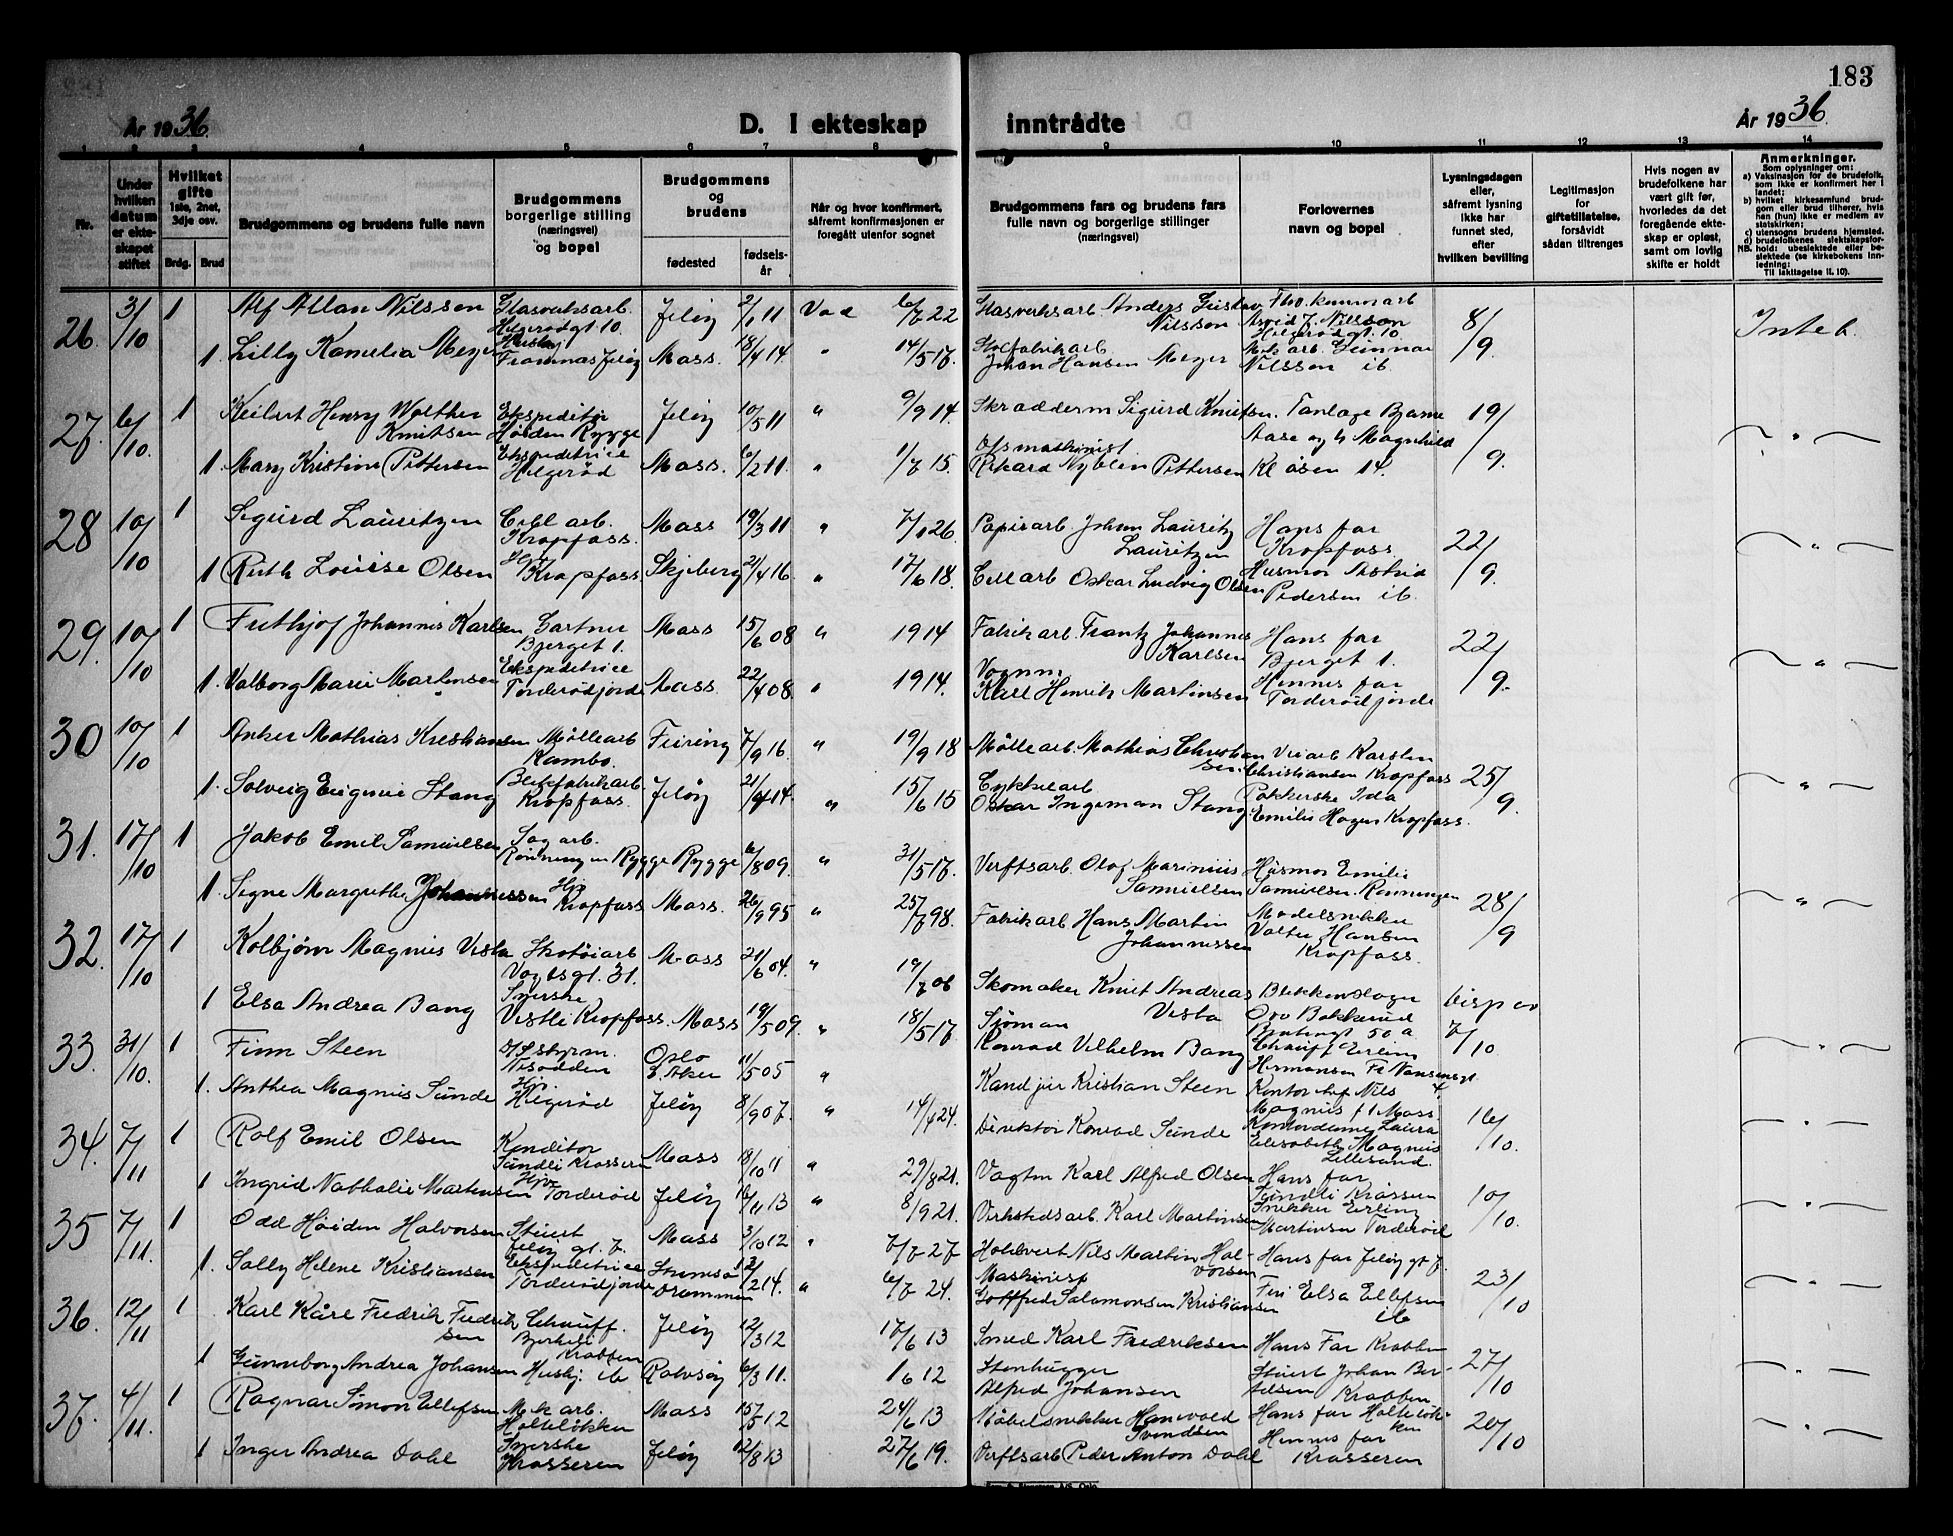 183
År 1936.
D. I ekteskap inntrådte
År 1936.
1 2 3 4 5 6 7 8 9 10 11 12 13 14
Nr.
Under hvilken datum er ekteskapet stiftet
Hvilket gifte 1ste, 2net, 3dje osv.
Brdg. Brud
Brudgommens og brudens fulle navn
Brudgommens borgerlige stilling (næringsvei) og bopel
Brudgommens og brudens
fødested
fødselsår
Når og hvor konfirmert, såfremt konfirmasjonen er foregått utenfor sognet
Brudgommens fars og brudens fars fulle navn og borgerlige stillinger (næringsvei)
Forlovernes navn og bopel
Lysningsdagen eller, såfremt lysning ikke har funnet sted, efter hvilken bevilling
Legitimasjon for giftetillatelse, forsåvidt sådan tiltrenges
Hvis nogen av brudefolkene har vært gift før, hvorledes da det foregående ekteskap er opløst, samt om lovlig skifte er holdt
Anmerkninger.
Som oplysninger om:
a) Vaksinasjon for de brudefolk, som ikke er konfirmert her i landet;
b) hvilket kirkesamfund brudgom eller brud tilhører, hvis han (hun) ikke er medlem av statskirken;
c) utensogns brudens hjemsted.
d) brudefolkenes slektskapsforhold: ubeslektede eller beslektede (se kirkebokens innledning:
NB. Til iakttagelse II. 10).
26. 3/10 1 Alf Allan Nilssen Glasverksarb. Helgerødgt 10. Jeløy 2/1 11 Vad 6/7 22 Glasverksarb Anders Gustav Nilsson Arvid J. Nilsson Helgerødgt. 10. 8/9. Inteb.
1. Lilly Kamelia Meyer Husbj Framnas Jeløy Mass. 18/4 14 " 14/5 17. Johan Hansen Meyer Mek arb. Gunnar Nilssen ib.
27. 6/10. 1 Keilert Henry Walther Knutsen Ekspeditør Høiden Rygge Jeløy 10/5 11 " 9/9 14. Skradderm Sigurd Knutsen. Tanlæge Bjarne Aase og h Magnhild 19/9. — " —
1. Mary Kristine Pettersen Ekspeditrice Helgerød Mass. 6/2 11. " 1/7 15. Rikard Nyblin Pettersen Kløsen 14.
28 10/10 1 Sigurd Lauritzen Cell arb. Kropfoss. Mass 19/3 11 " 7/1 26. Papirarb. Johan Lauritz Lauritzen Hans far Kropfoss 22/9. — " —
1 Ruth Louise Olsen Hj. Kropfoss Skjeberg 21/4 16 " 17/6 18. Cellarb Oskar Ludvig Olsen Husmor Astrid Pedersen ib.
29. 10/10 1 Fritjof Johannes Karlsen Gartner Bjerget 1. Mass 15/6 08 " 1914 Fabrikarb. Frantz Johannes Karlsen Hans far Bjerget 1. 22/9. — " —
1. Valborg Marie Martensen Ekspeditrice Torderødjorde Mass. 22/4 08 " 1914. Vognm Karl Henrik Martinsen Hennes far Torderødjorde
30 10/10 1 Anker Mathias Kristiansen Møllearb Kambo. Feiring 7/9 16 " 19/9 18 Møllearb. Mathias Christiansen Veiarb Karsten Christiansen Kropfoss 25/9. — " —
1. Solveig Eugenie Stang Blikfabrikarb. Kropfoss. Jeløy 21/4 14 " 15/6 15 Oskar Ingeman Stang. Pakkerske Ida Emilie Hagen Kropfoss.
31. 17/10 1 Jakob Emil Samuelsen Sagarb. Rønningen Rygge Rygge 6/8 09. " 31/5 17. Verftsarb. Olof Marinius Samuelsen Husmor Emilie Samuelsen. Rønningen 28/9 — " —
1. Signe Margrethe Johannessen Hj. Kropfoss Mass. 26/9 95 " 25/7 98. Fabrikarb Hans Martin Johannessen Modelsnekker Valter Hansen Kropfoss.
32. 17/10 1 Kolbjørn Magnus Vesta Skotøiarb Vogtsgt. 31. Mass 21/6 04. " 19/7 06 Skomaker Knut Andreas Vesta Blikkenslager Bakkerud 50 a bisp av 7/10
1 Elsa Andrea Bang Syerske Vestli Kropfoss. Mass 19/5 09. " 18/5 17. Sjøman Konrad Vilhelm Bang Chauff Erling Hermansen
33. 31/10. 1 Finn Steen Nesodden Oslo V. Aker 11/5 05 " Kand jur Kristian Steen Kontorchef Nils Magnus Mass 16/10. — " —
1. Anthea Magnus Sunde Hj. Helgerød Jeløy 8/9 07. " 14/4 24. Direktør Konrad Sunde Kontordame Laura Elisabeth Magnus Lillesand.
34. 7/11 1 Rolf Emil Olsen Konditor Sundli Krosseren Mass 18/10 11 " 29/8 21. Vagtm Karl Alfred Olsen Hans far Sundli Krossen 10/10. — " —
1 Ingrid Nathalie Martensen Hj Torderød Jeløy 16/11 13 " 8/9 21. Verkstedsarb. Karl Martinsen Snekker Erling Martinsen Torderød
35 7/11. 1 Odd Høiden Halvorsen Stuert Jeløy gt. 7. Mass 3/10 12 " 7/7 27 Nils Martin Halvorsen Hans far Jeløygt 7. 23/10 — " —
1. Sally Helene Kristiansen Ekspeditrice Torderødjorde Strømsø Drammen 12/2 14. " 6/7 24. Maskinist Gottfred Salamonsen Kristiansen Frk Elsa Ellefsen ib
36. 12/11 1 Karl Kåre Fredrik Fredriksen Chauff. Bjerkeli Krabben Jeløy 12/3 12 17/6 13 Smed Karl Fredriksen Hans Far Krabben 27/10 — " —
1 Gunneborg Andrea Johansen Husbj. ib Rolvsøy 6/3 11. 1 6 12 Stenhugger Alfred Johansen Stuert Johan Bertelsen Krabben
37. 4/11. 1 Ragnar Simon Ellefsen Mek arb. Holteløkken Mass 15/5 12 24/6 13 Møbelsnekker Hanevold Svendsen Hans far Holteløkken 20/10 — " —
1 Inger Andrea Dahl Syerske Krosseren Jeløy 12/8 13 27/6 19. Verftsarb Peder Anton Dahl Hennes far Krosseren